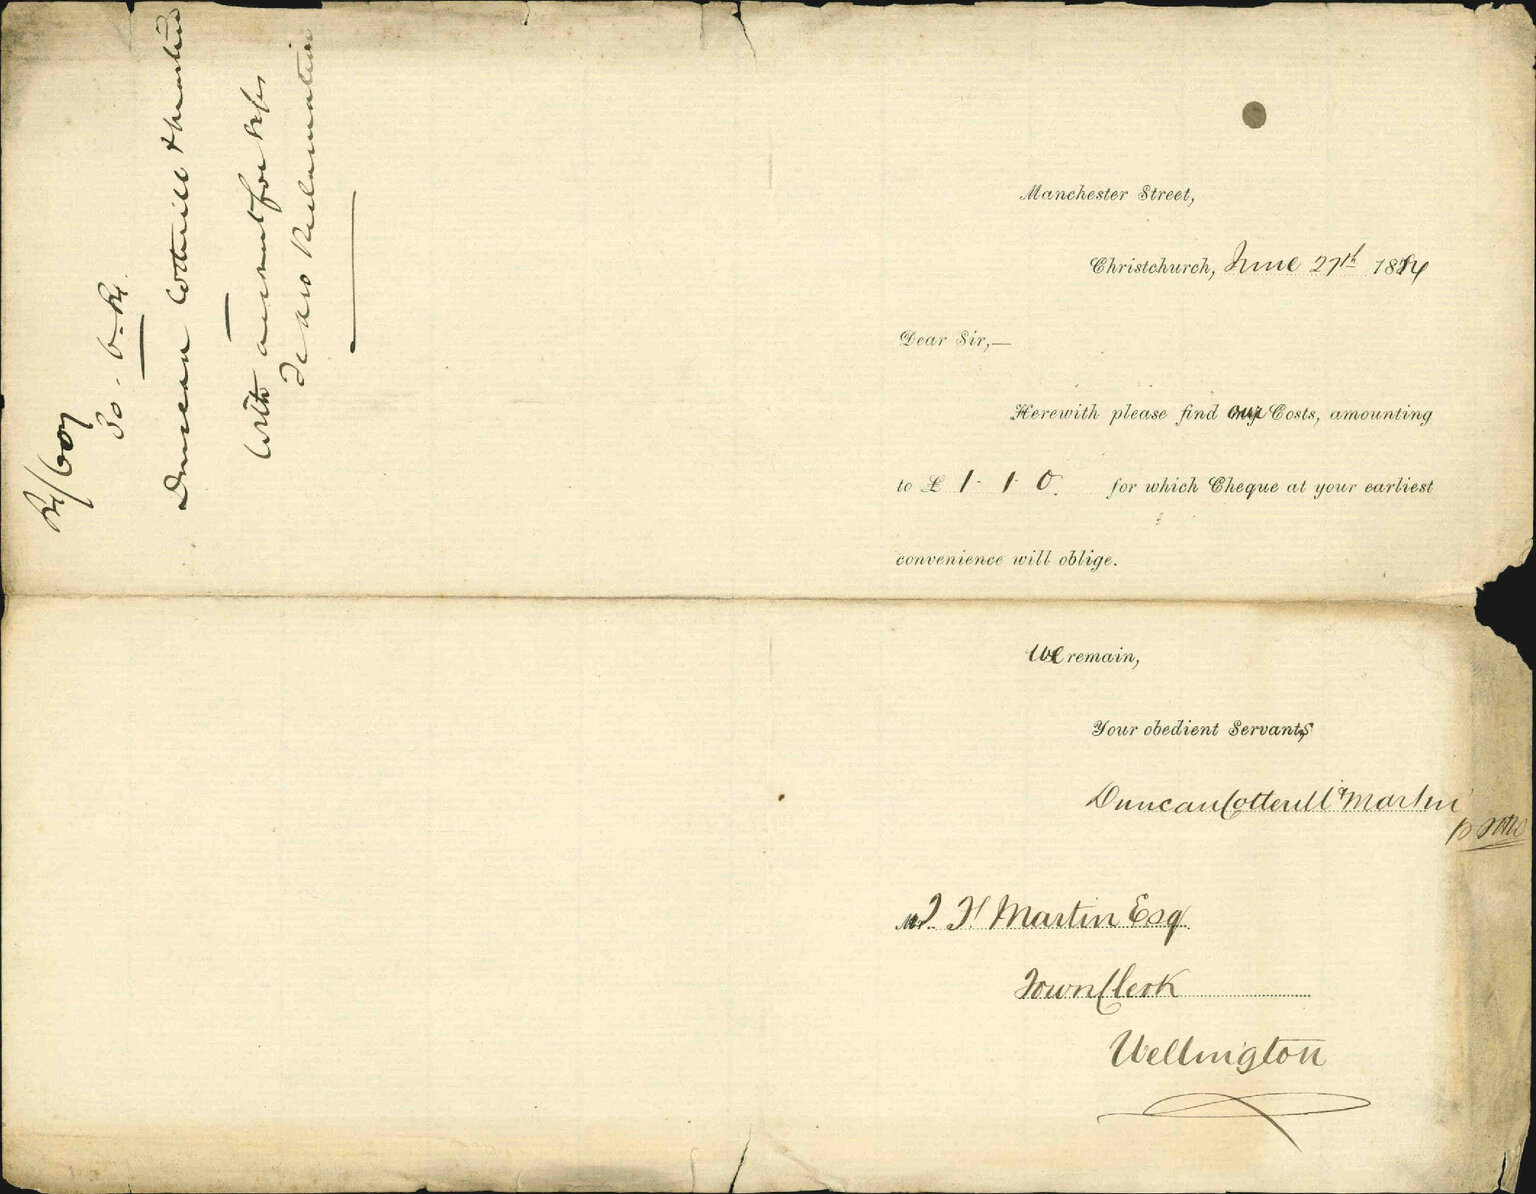 84/607
30.6.84
Duncan Cotterill & Martin
With account for exps
Te Aro Reclamation
Manchester Street,
Christchurch, June 27th 1884
Dear Sir,—
Herewith please find our Costs, amounting
to £ 1 - 1 0. for which Cheque at your earliest
convenience will oblige.
We remain,
Your obedient Servants
Duncan Cotterill & Martin
Mr. J H Martin Esq.
Town Clerk
Wellington